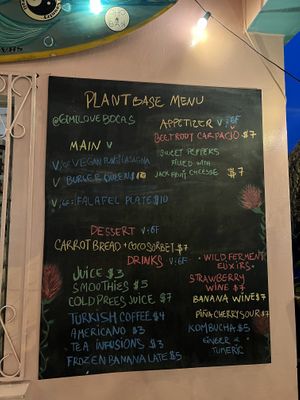 PLANTBASE MENU
@EIMILOVEBOCAS
MAIN V
V/GF VEGAN LASAGNA
V BURGER QUEEN $10
V/GF FALAFEL PLATE $10
APPETIZER V/GF
BEETROOT CARPACIO $7
SWEET PEPPERS
FILLED WITH
JACKFRUIT CHEESSE $7
DESSERT V/GF
CARROT BREAD + COCO SORBET $7
DRINKS V/GF
JUICE $3
SMOOTHIES $5
COLD PREES JUICE $7
TURKISH COFFEE $4
AMERICANO $3
TEA INFUSIONS $3
FROZEN BANANA LATE $5
• WILD FERMENT
ELIXIRS •
STRAWBERRY
WINE $7
BANANA WINE $7
PIÑA CHERRY SOUR $7
KOMBUCHA $5
GINGER &
TUMERIC